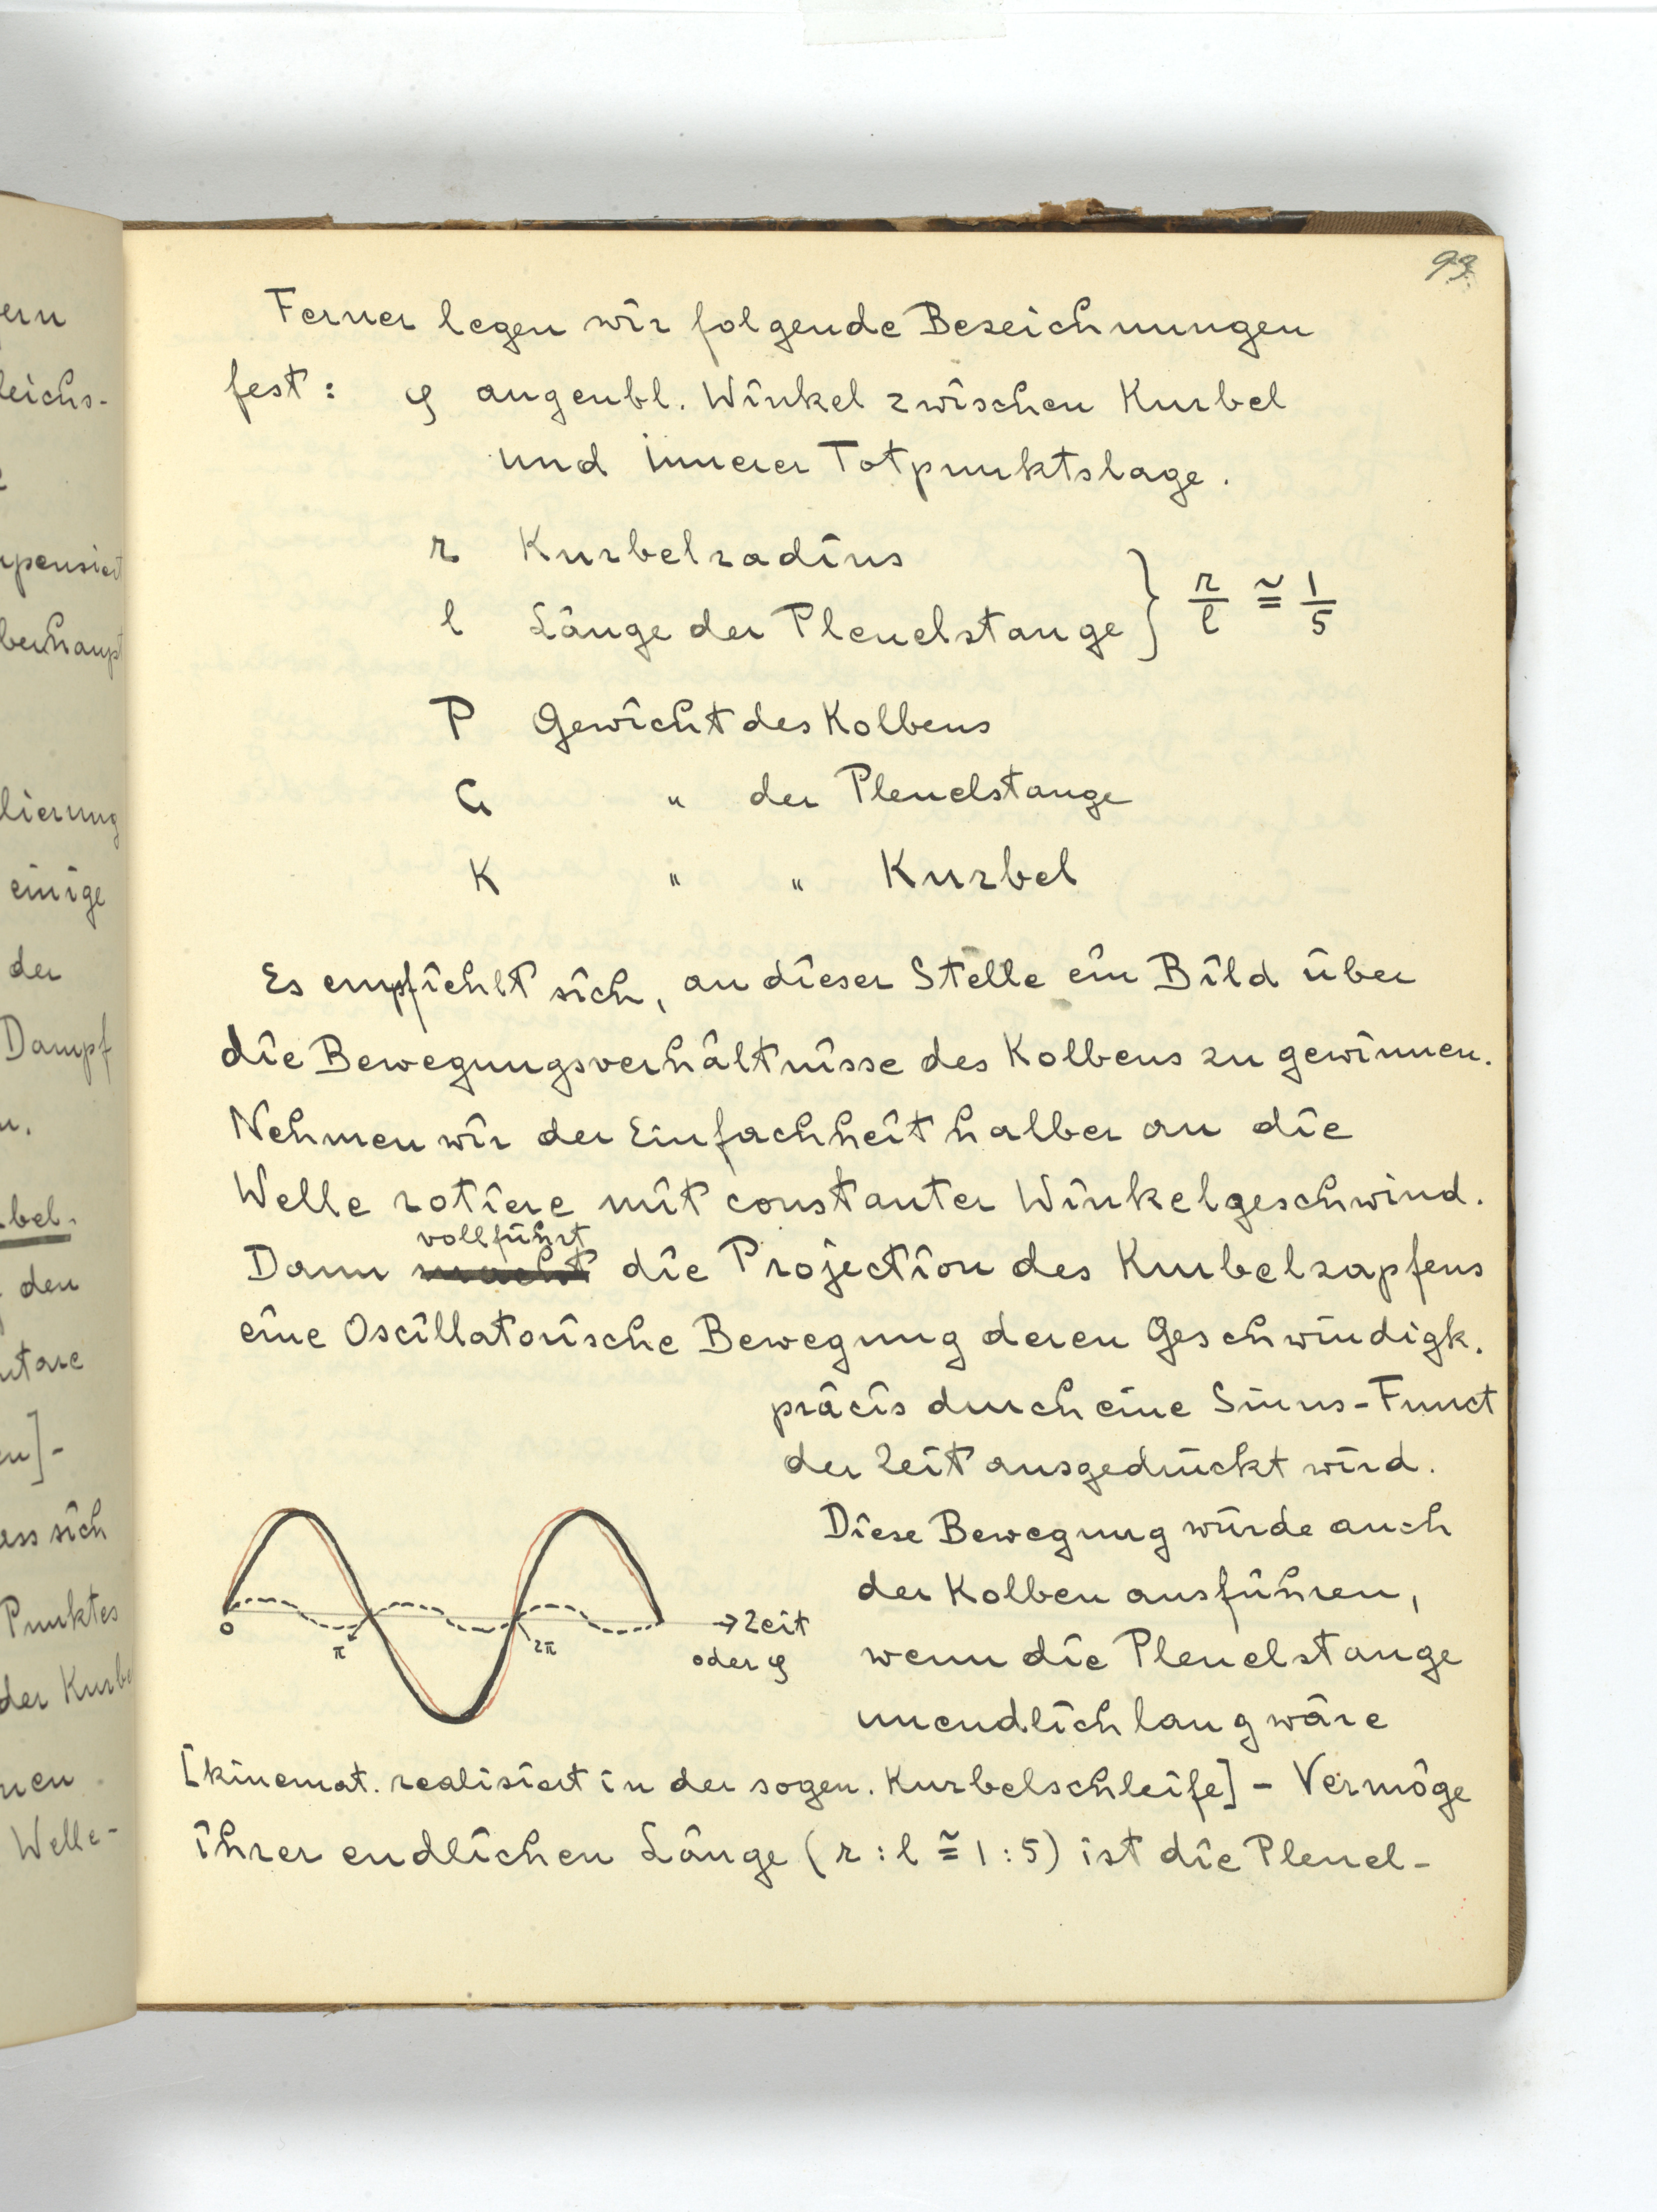 93.
Ferner legen wir folgende Bezeichnungen
fest: φ augenbl. Winkel zwischen Kurbel
und innerer Totpunktslage.
r Kurbelradius
l Länge der Pleuelstange } r/l ≅ 1/5
P Gewicht des Kolbens
G " der Pleuelstange
K " " Kurbel
Es empfiehlt sich, an dieser Stelle ein Bild über
die Bewegungsverhältnisse des Kolbens zu gewinnen.
Nehmen wir der Einfachheit halber an die
Welle rotiere mit constanter Winkelgeschwind.
vollführt
Dann macht die Projection des Kurbelzapfens
eine Oscillatorische Bewegung deren Geschwindigk.
präcis durch eine Sinus-Funct
der Zeit ausgedrückt wird.
Diese Bewegung würde auch
der Kolben ausführen,
wenn die Pleuelstange
unendlich lang wäre
0 π 2π → Zeit
oder φ
[kinemat. realisiert in der sogen. Kurbelschleife] - Vermöge
ihrer endlichen Länge (r : l ≅ 1 : 5) ist die Pleuel-
ern
leichs-
lierung
einige
der
Dampf
bel.
den
en]-
ass sich
Punktes
der Kurbe
nen
Welle-